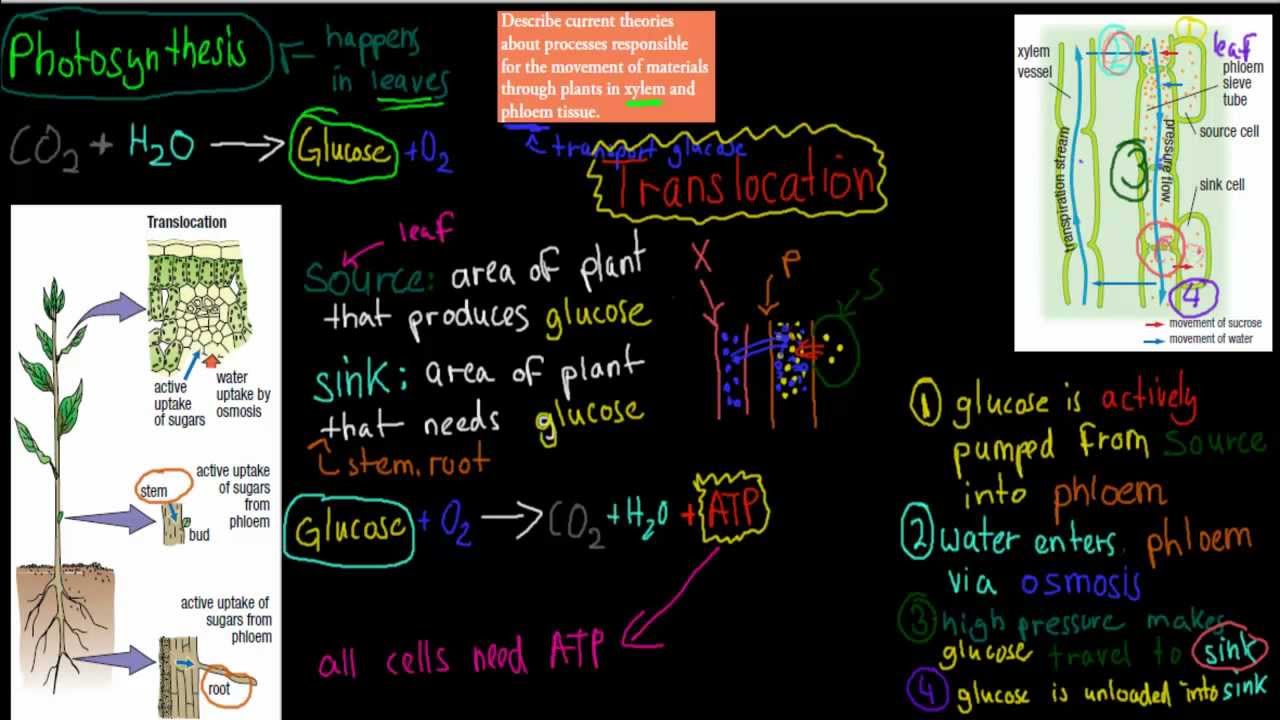 Photosynthesis
happens
in leaves
CO2 + H2O → Glucose + O2
Describe current theories
about processes responsible
for the movement of materials
through plants in xylem and
phloem tissue.
transport glucose
Translocation
leaf
Source: area of plant
that produces glucose
sink: area of plant
that needs glucose
stem, root
Glucose + O2 → CO2 + H2O + ATP
all cells need ATP
X
P
S
Translocation
active
uptake
of sugars
water
uptake by
osmosis
stem
bud
active uptake
of sugars
from
phloem
active uptake of
sugars from
phloem
root
xylem
vessel
1
2
leaf
phloem
sieve
tube
source cell
transpiration stream
3
pressure flow
sink cell
4
movement of sucrose
movement of water
1 glucose is actively
pumped from source
into phloem
2 water enters phloem
via osmosis
3 high pressure makes
glucose travel to sink
4 glucose is unloaded into sink